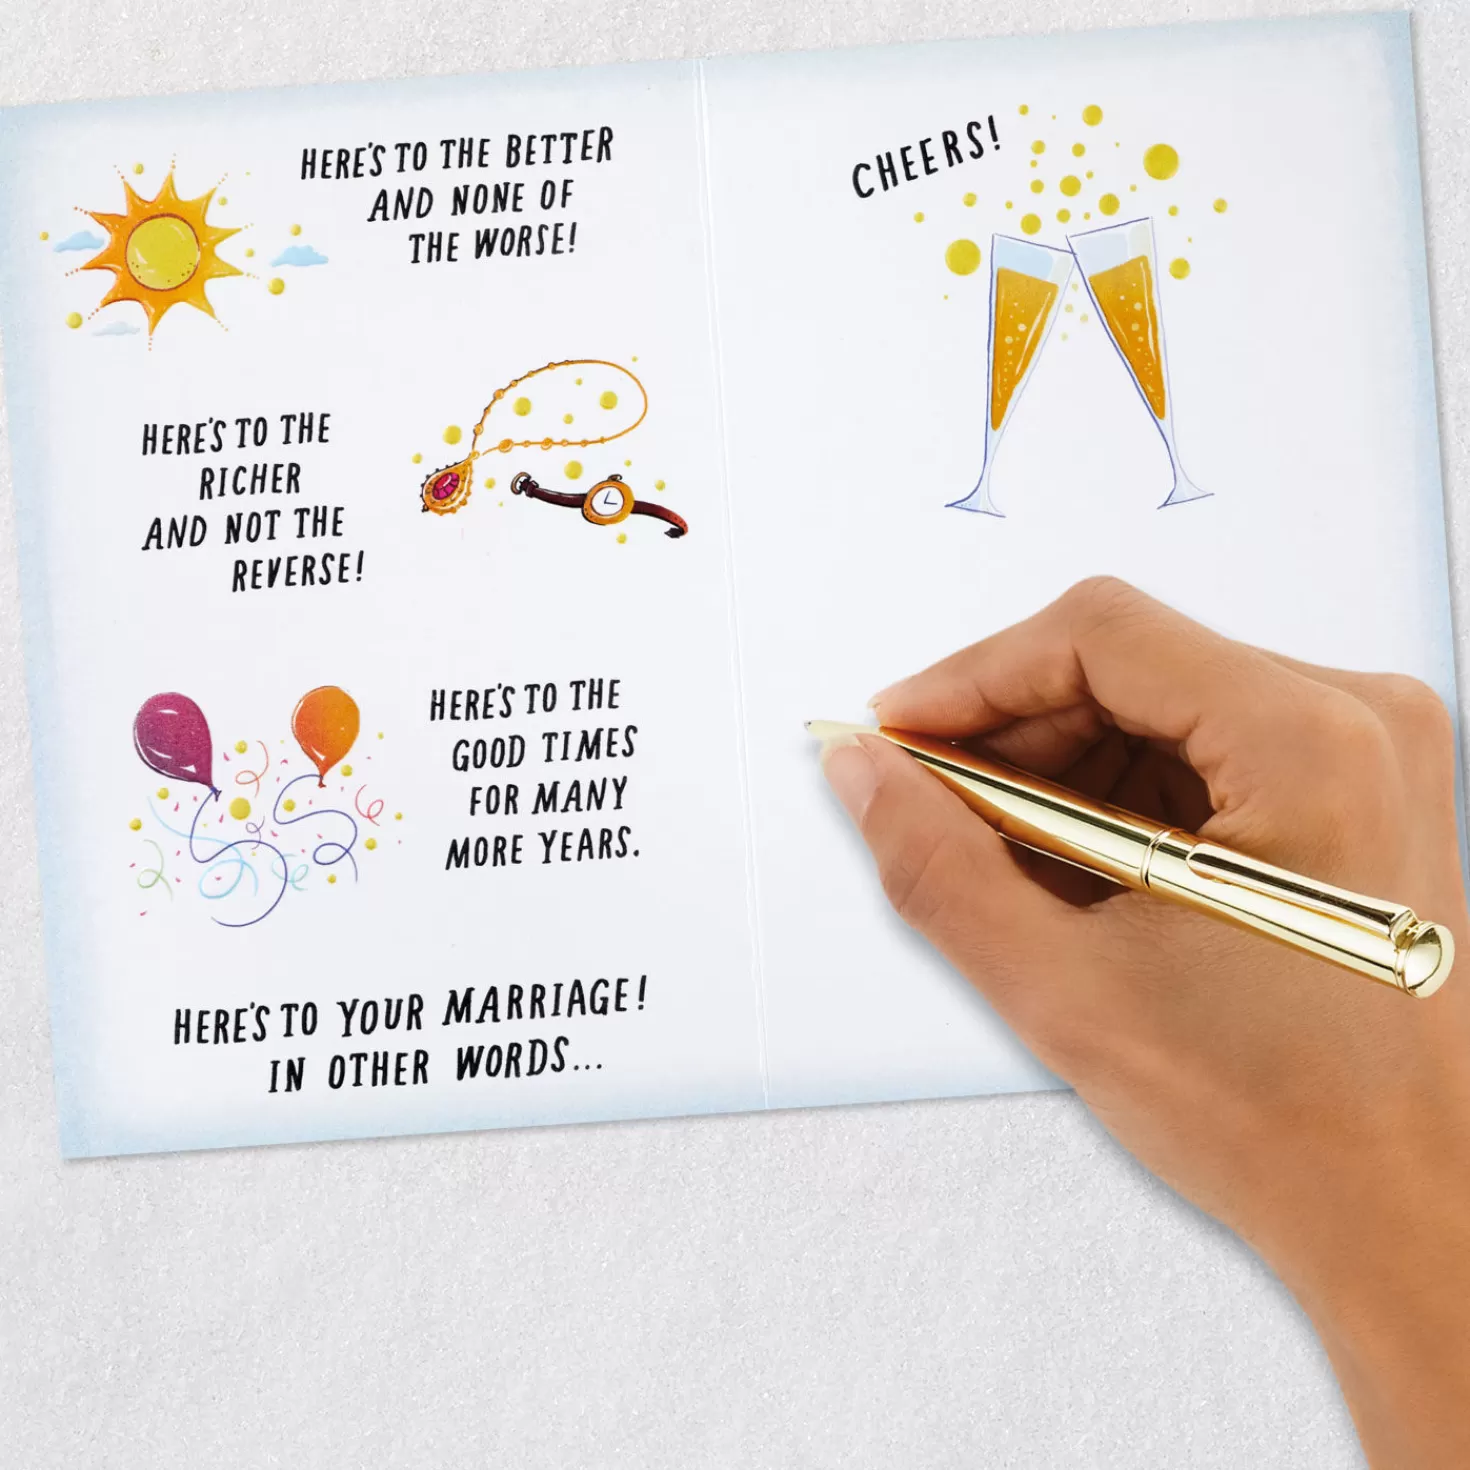 HERE'S TO THE BETTER
AND NONE OF
THE WORSE!
HERE'S TO THE
RICHER
AND NOT THE
REVERSE!
HERE'S TO THE
GOOD TIMES
FOR MANY
MORE YEARS.
HERE'S TO YOUR MARRIAGE!
IN OTHER WORDS...
CHEERS!